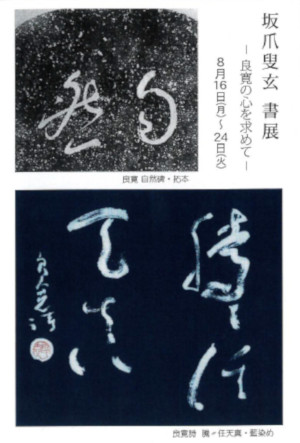 坂爪叟玄 書展
―良寛の心を求めて―
8月16日(月)～24日(火)
自然
良寛 自然碑・拓本
騰〃任
天真
良寛詩 騰〃任天真・藍染め